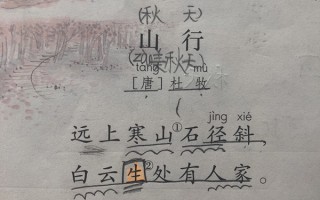 (秋 天)
山 行
秋天)
táng mù
[唐] 杜 牧
jìng xié
远上寒山①石径斜,
白云生②处有人家。